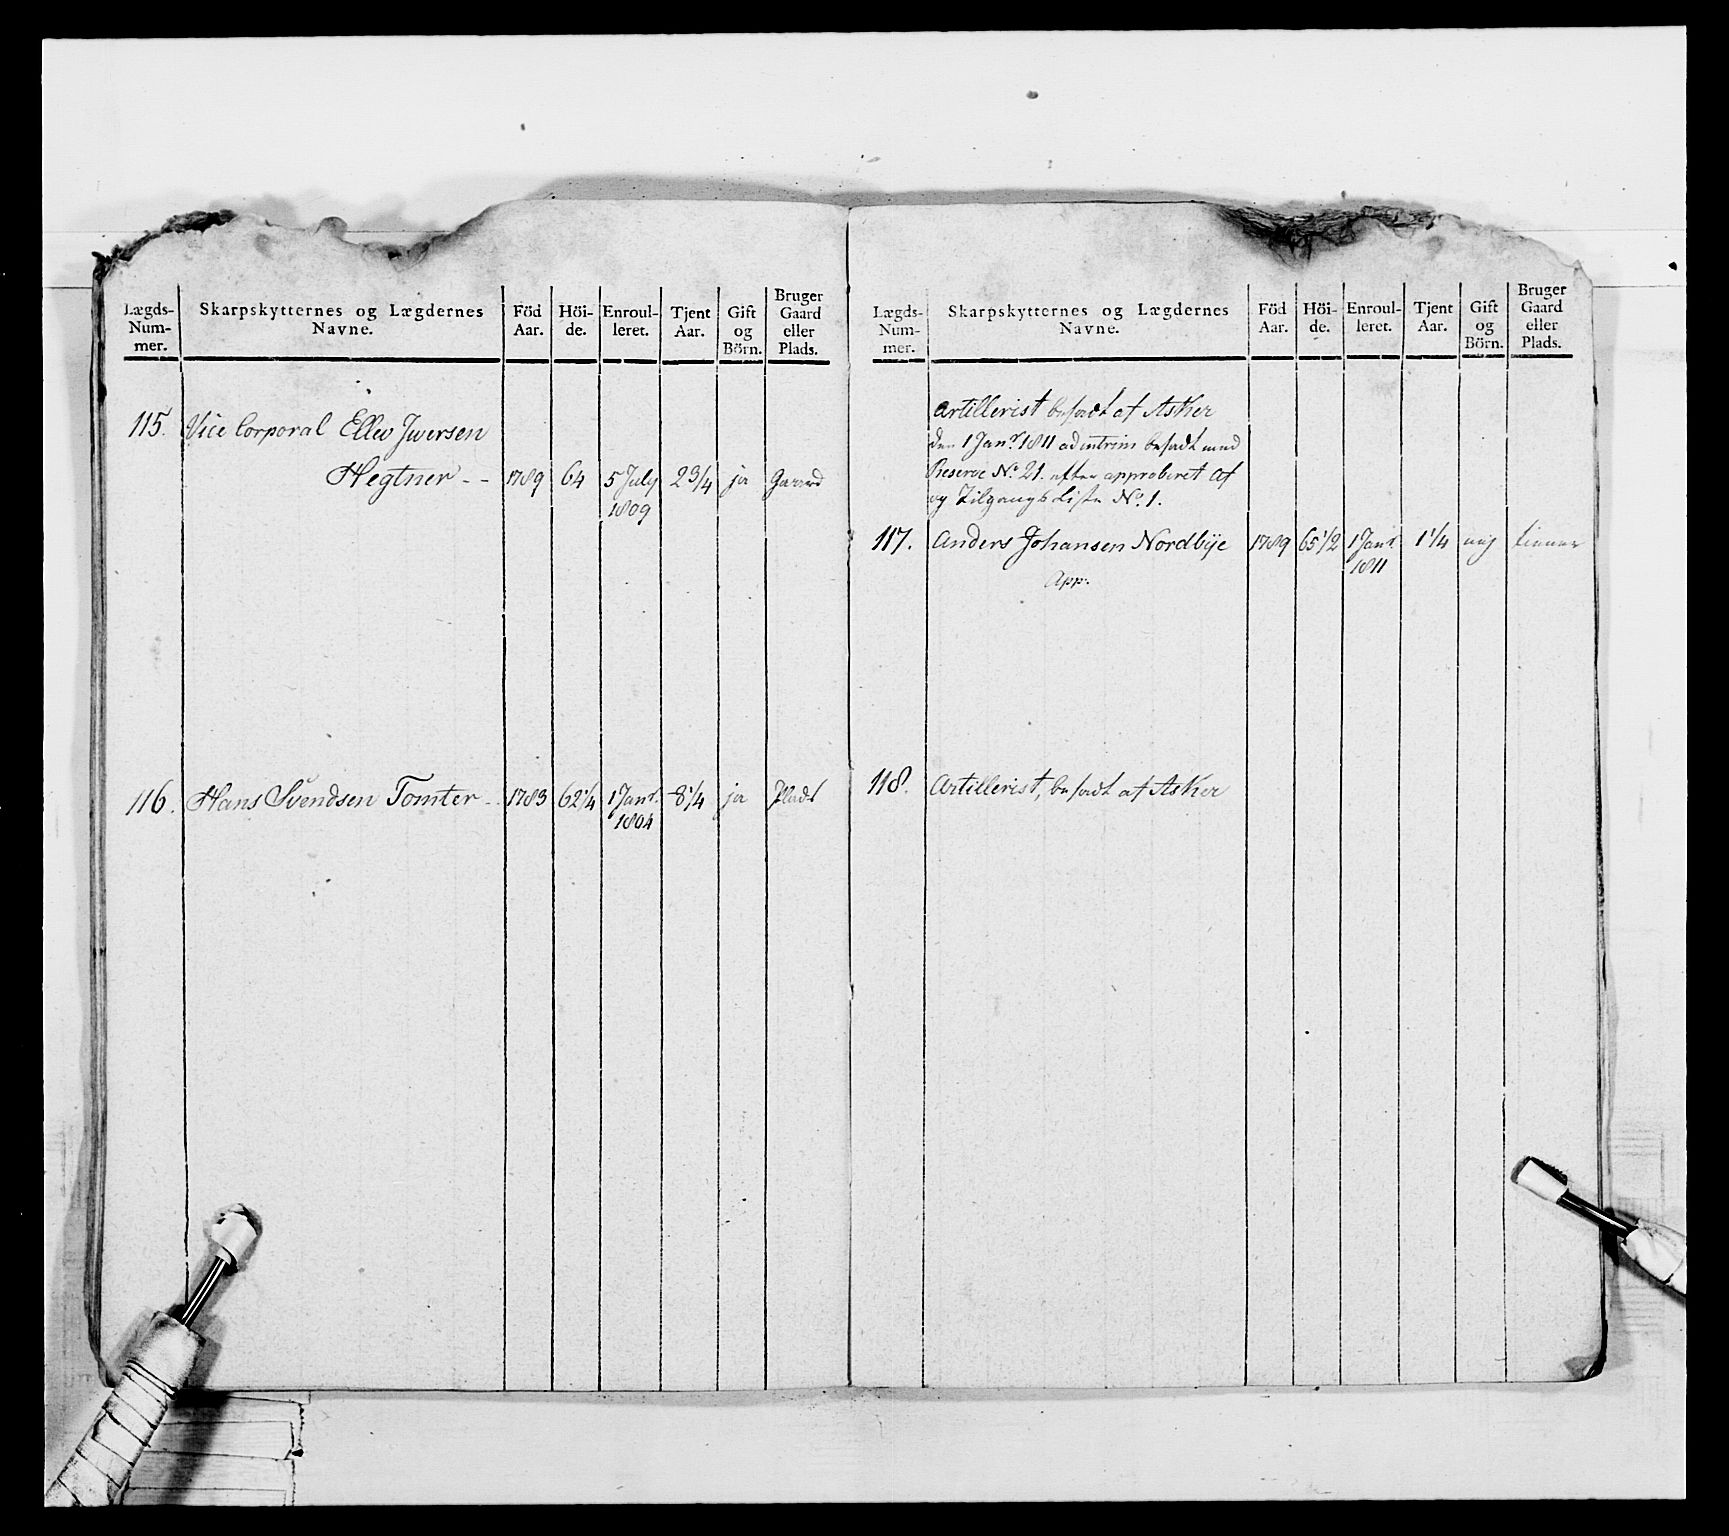 Lægds-Num-mer. Skarpskytternes og Lægdernes Navne. Föd Aar. Höi-de. Enroul-leret. Tjent Aar. Gift og Börn. Bruger Gaard eller Plads.
115. Vice Corporal Ellev Iversen
Hegtner - - 1789 64 5 July 2 3/4 ja Gaard
1809
116. Hans Svendsen Tomter - 1783 62 1/4 1 Janr. 8 1/4 ja Plads
1804
Lægds-Num-mer. Skarpskytternes og Lægdernes Navne. Föd Aar. Höi-de. Enroul-leret. Tjent Aar. Gift og Börn. Bruger Gaard eller Plads.
Artillerist besadt af Asker
den 1 Janr. 1811 ad intrim besadt med
Reserve No. 21. efter approberet Af
og Tilgangs Liste No. 1.
117. Anders Johansen Nordbÿe 1789 65 1/2 1 Janr. 1 1/4 neÿ tiener
App: 1811
118. Artillerist, besadt af Asker